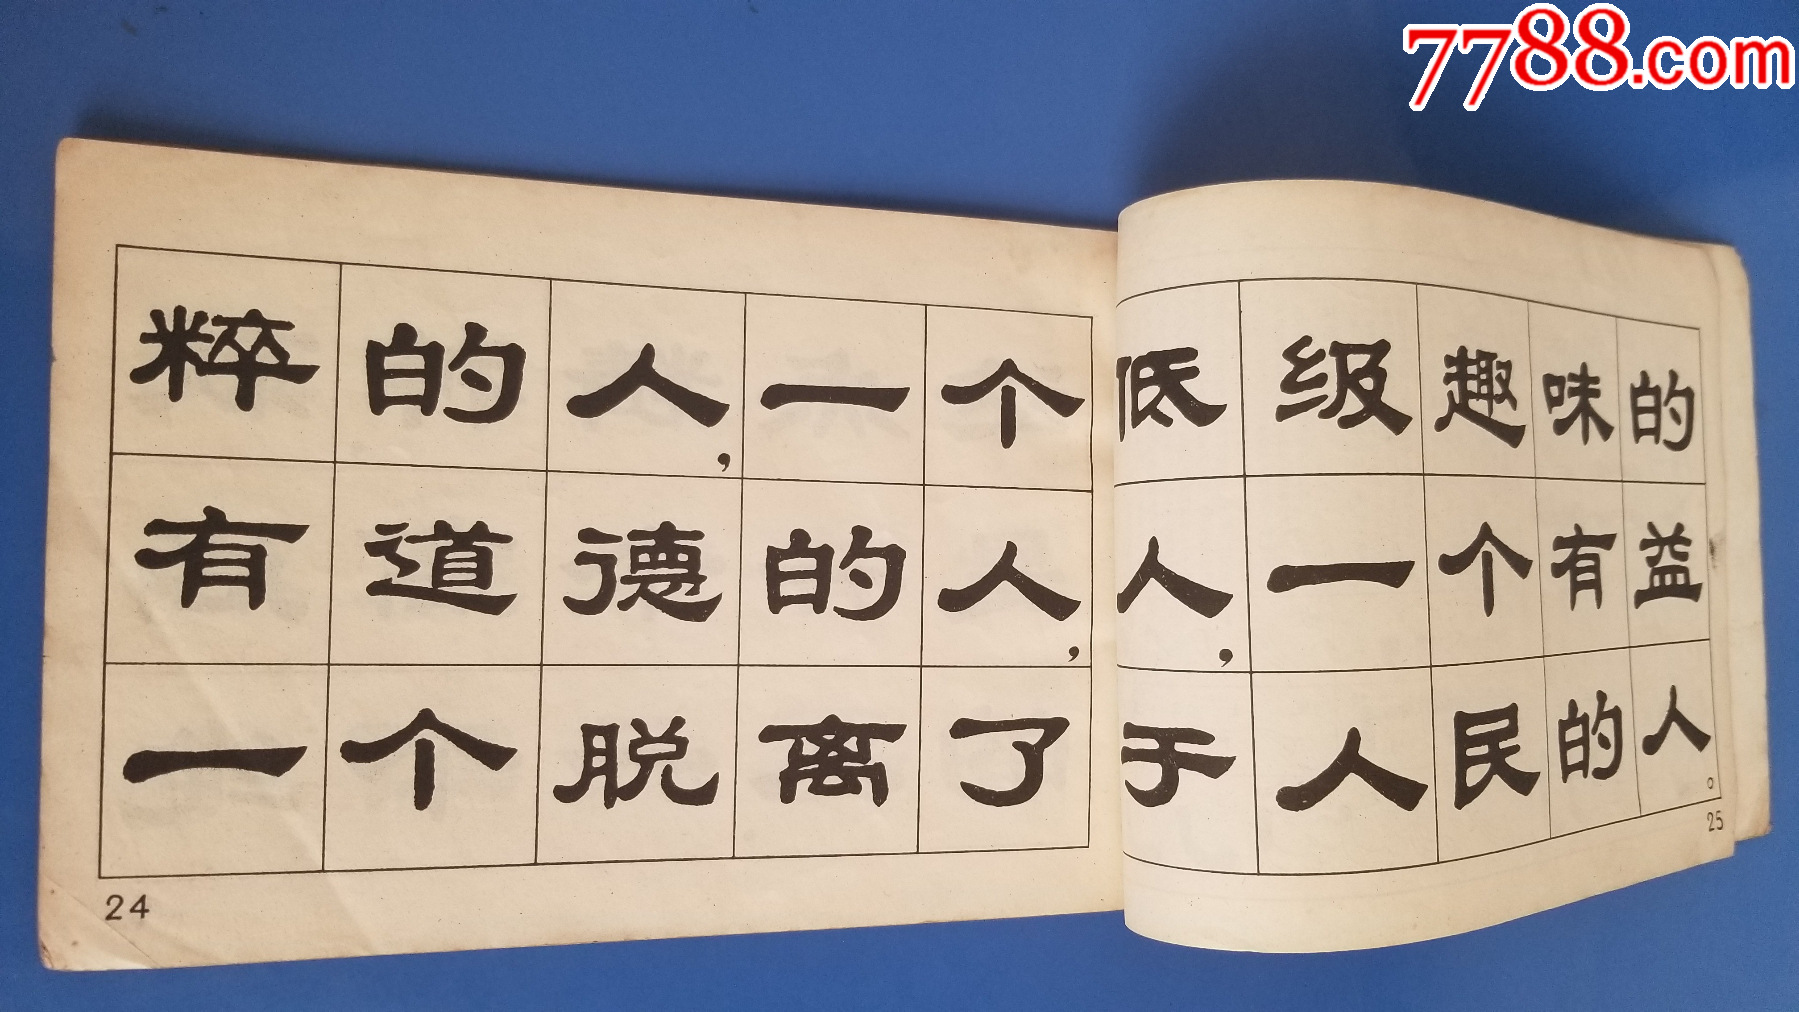 7788.com
粹的人，一个
有道德的人，
一个脱离了
24
低级趣味的
人，一个有益
于人民的人。
25